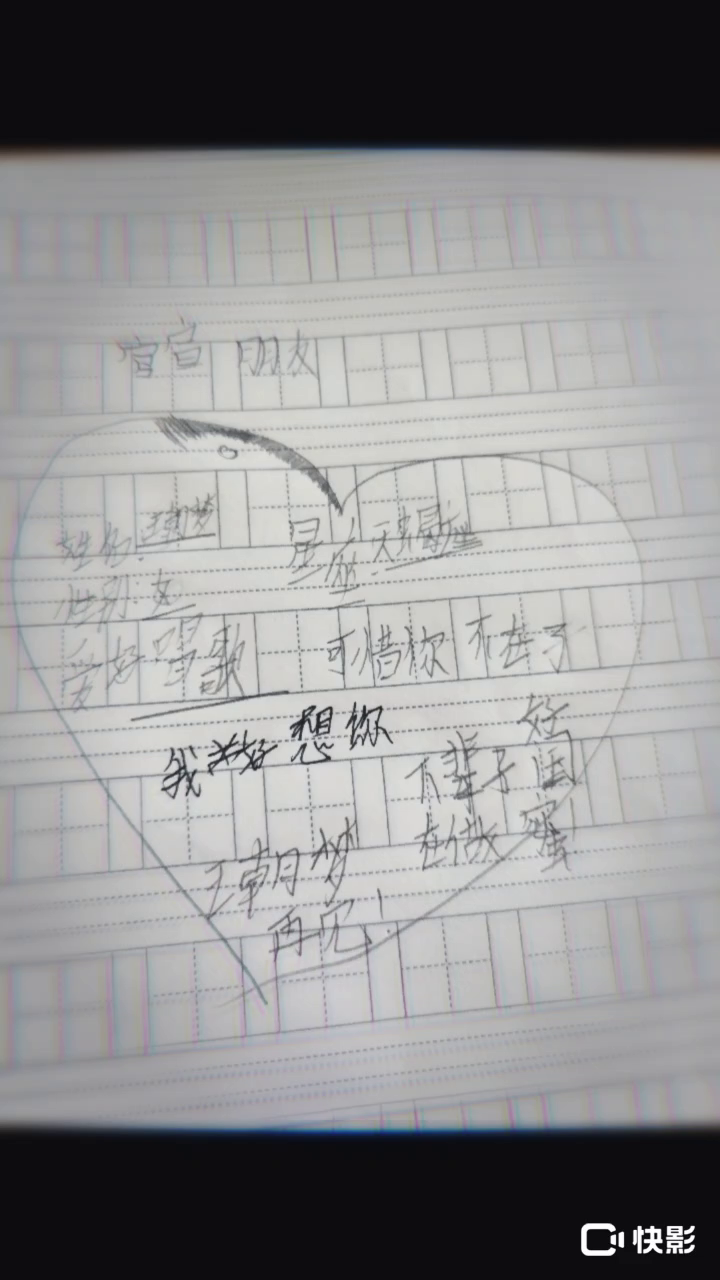 宫宫 朋友
姓名:王朝梦
星座:天蝎座
性别:女
爱好唱歌
可惜你不在了
我好想你
下辈子
在做
好闺蜜!
王朝梦
再见!
快影